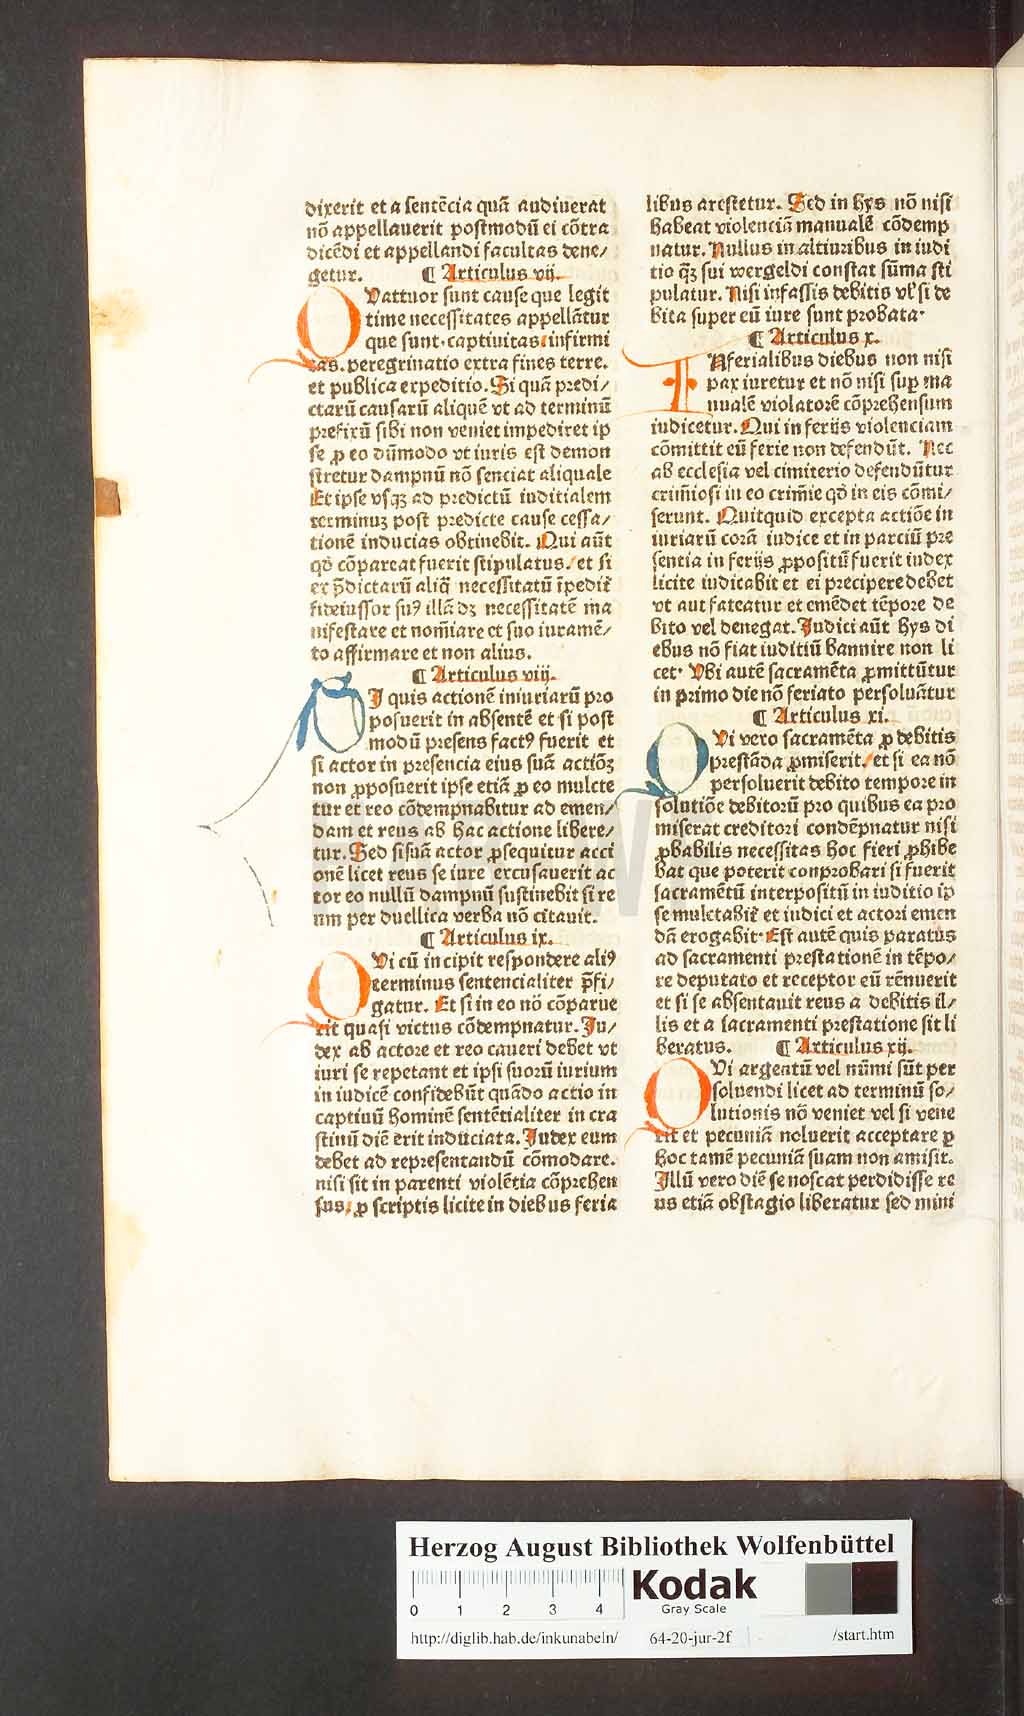 dixerit et a sentēcia quā audiuerat
nō appellauerit postmodū ei cōtra
dicēdi et appellandi facultas dene/
getur. ¶ Articulus vij.
QVattuor sunt cause que legit
time necessitates appellātur
que sunt·captiuitas/infirmi
tas. peregrinatio extra fines terre.
et publica expeditio. Si quā predi/
ctarū causarū aliquē vt ad terminū
prefixū sibi non veniet impediret ip
se ꝓ eo dūmodo vt iuris est demon
stretur dampnū nō senciat aliquale
Et ipse vsqꝫ ad predictū iuditialem
terminuꝫ post predicte cause cessa/
tionē inducias obtinebit. Qui aūt
qd̄ cōpareat fuerit stipulatus/et si
ex p̄dictarū aliq̄ necessitatū īpedit᷑
fideiussor suꝰ illā dꝫ necessitatē ma
nifestare et nom̄iare et suo iuramē/
to affirmare et non alius.
¶ Articulus viij.
SI quis actionē iniuriarū pro
posuerit in absentē et si post
modū presens factꝰ fuerit et
si actor in presencia eius suā actiōꝫ
non ꝓposuerit ipse etiā ꝓ eo mulcte
tur et reo cōdempnabitur ad emen/
dam et reus ab hac actione libere/
tur. Sed si suā actor ꝓsequitur acci
onē licet reus se iure excusauerit ac
tor eo nullū dampnū sustinebit si re
um per duellica verba nō citauit.
¶ Articulus ix.
QVi cū incipit respondere aliꝰ
terminus sentencialiter p̄fi/
gatur. Et si in eo nō cōparue
rit quasi victus cōdempnatur. Iu/
dex ab actore et reo caueri debet vt
iuri se repetant et ipsi suorū iurium
in iudicē confidebūt quādo actio in
captiuū hominē sentētialiter in cra
stinū diē erit induciata. Iudex eum
debet ad representandū cōmodare.
nisi sit in parenti violētia cōprehen
sus/ꝓ scriptis licite in diebus feria
libus arestetur. Sed in hys nō nisi
habeat violenciā manualē cōdemp
natur. Nullus in altiuribus in iudi
tio qꝫ sui wergeldi constat sūma sti
pulatur. Nisi infassis debitis vl̄ si de
bita super eū iure sunt probata·
¶ Articulus x.
INferialibus diebus non nisi
pax iuretur et nō nisi suꝑ ma
nualē violatorē cōprehensum
iudicetur. Qui in ferijs violenciam
cōmittit eū ferie non defendūt. Nec
ab ecclesia vel cimiterio defendūtur
crim̄iosi in eo crim̄ie qd̄ in eis cōmi/
serunt. Quitquid excepta actiōe in
iuriarū corā iudice et in parciū pre
sentia in ferijs ꝓpositū fuerit iudex
licite iudicabit et ei precipere debet
vt aut fateatur et emēdet tēpore de
bito vel denegat. Iudici aūt hys di
ebus nō fiat iuditiū bannire non li
cet· Vbi autē sacramēta ꝓmittūtur
in primo die nō feriato persoluātur
¶ Articulus xi.
QVi vero sacramēta ꝓ debitis
prestāda ꝓmiserit/et si ea nō
persoluerit debito tempore in
solutiōe debitorū pro quibus ea pro
miserat creditori condēpnatur nisi
ꝓbabilis necessitas hoc fieri ꝓhibe
bat que poterit conprobari si fuerit
sacramētū interpositū in iuditio ip
se mulctabit᷑ et iudici et actori emen
dā erogabit· Est autē quis paratus
ad sacramenti prestationē in tēpo/
re deputato et receptor eū rēnuerit
et si se absentauit reus a debitis il/
lis et a sacramenti prestatione sit li
beratus. ¶ Articulus xij.
QVi argentū vel nūmi sūt per
soluendi licet ad terminū so/
lutionis nō veniet vel si vene
rit et pecuniā noluerit acceptare ꝓ
hoc tamē pecuniā suam non amisit.
Illū vero diē se noscat perdidisse re
us etiā obstagio liberatur sed mini
Herzog August Bibliothek Wolfenbüttel
0 1 2 3 4
Kodak
Gray Scale
http://diglib.hab.de/inkunabeln/ 64-20-jur-2f /start.htm